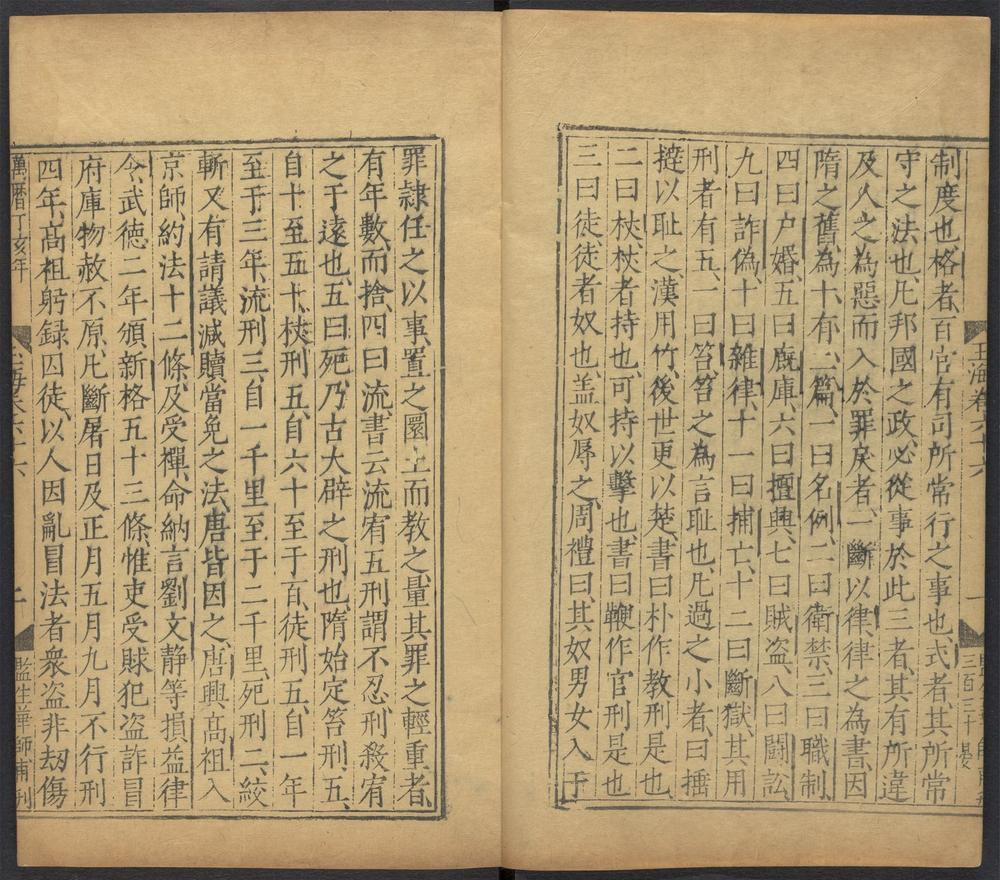 玉海卷六十六
一
三百三十
制度也格者百官有司所常行之事也式者其所常
守之法也凡邦國之政必從事於此三者其有所違
及人之為惡而入於罪戾者一斷以律律之為書因
隋之舊為十有二篇一曰名例二曰衛禁三曰職制
四曰户婚五曰廐庫六曰擅興七曰賊盗八曰鬬訟
九曰詐偽十曰雜律十一曰捕亡十二曰斷獄其用
刑者有五一曰笞笞之為言耻也凡過之小者曰捶
撻以耻之漢用竹後世更以楚書曰朴作教刑是也
二曰杖杖者持也可持以擊也書曰鞭作官刑是也
三曰徒徒者奴也盖奴辱之周禮曰其奴男女入于
罪隷任之以事置之圜土而教之量其罪之輕重者
有年數而捨四曰流書云流宥五刑謂不忍刑殺宥
之于遠也五曰死乃古大辟之刑也隋始定笞刑五
自十至五十杖刑五自六十至于百徒刑五自一年
至于三年流刑三自一千里至于二千里死刑二絞
斬又有請議減贖當免之法唐皆因之唐興高祖入
京師約法十二條及受禪命納言劉文静等損益律
令武徳二年頒新格五十三條惟吏受賕犯盗詐冒
府庫物赦不原凡斷屠日及正月五月九月不行刑
四年高祖躬録囚徒以人因亂冒法者衆盗非刼傷
萬曆丁亥年
玉海卷六十六
二
監生 師 刊